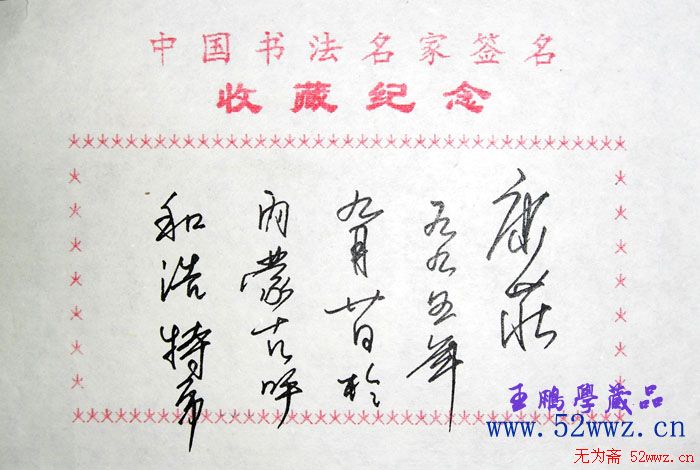 中国书法名家签名
收藏纪念
康莊
一九九五年
九月廿日於
内蒙古呼
和浩特市
王鹏學藏品
www.52wwz.cn
无为斋 52wwz.cn